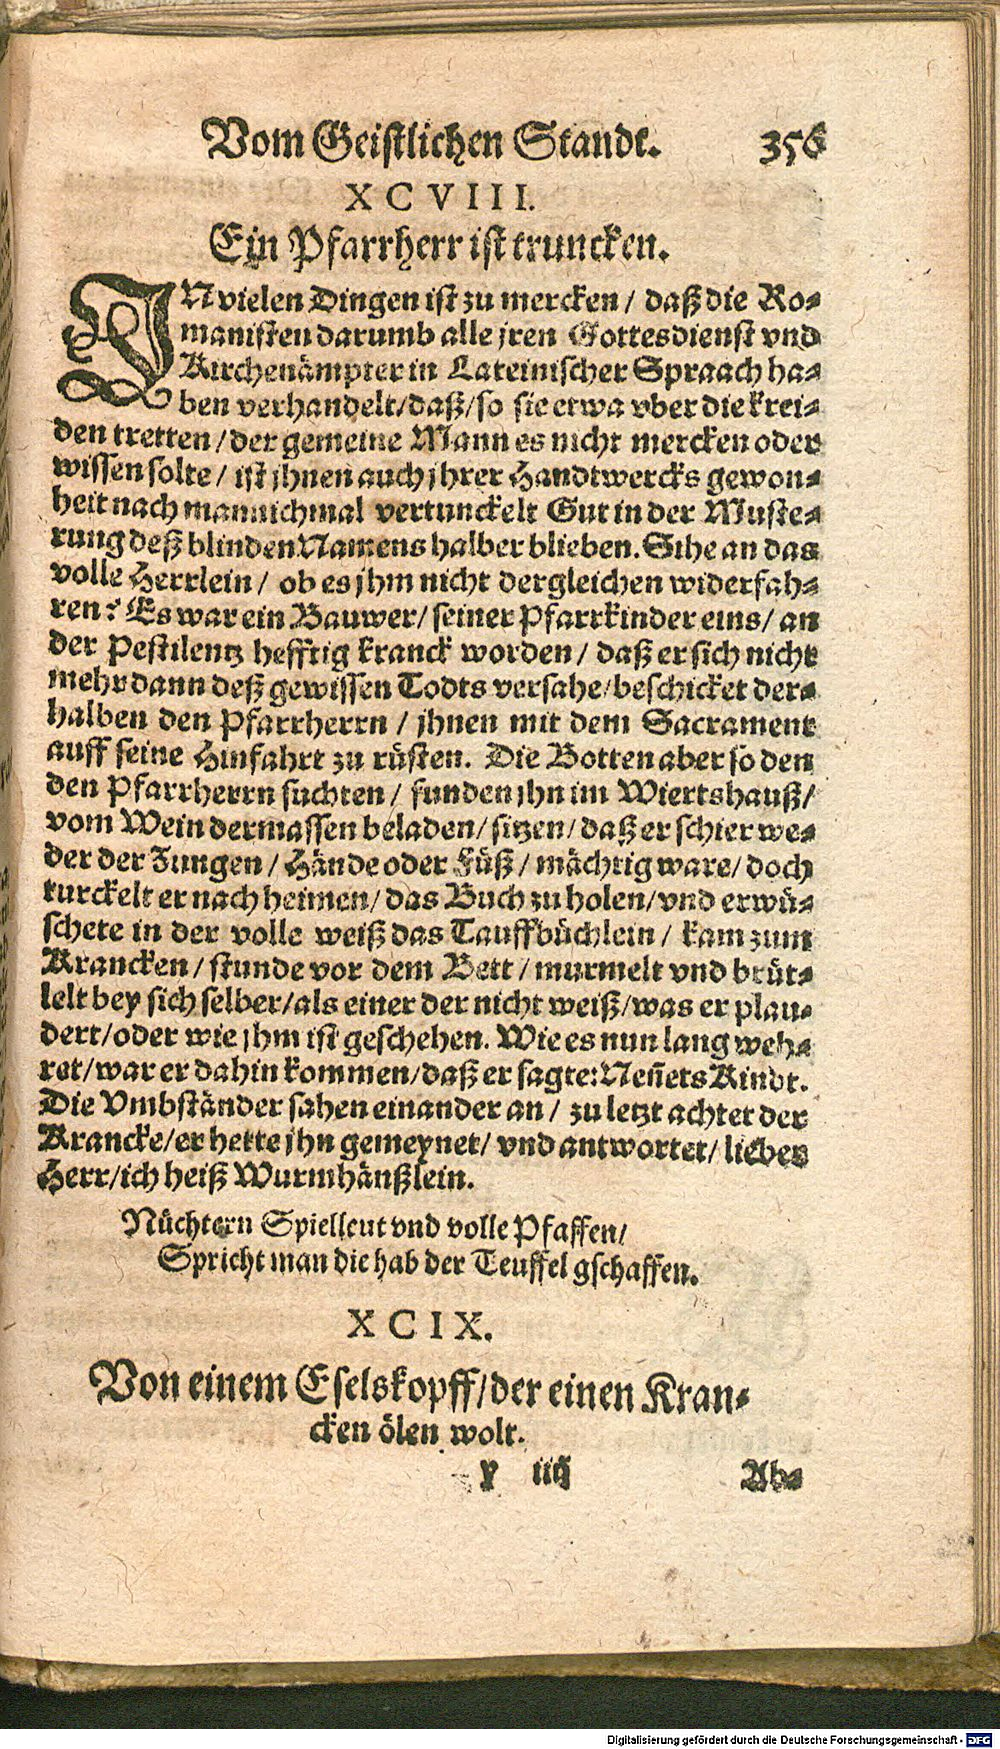 Vom Geistlichen Standt. 356
XCVIII.
Ein Pfarrherr ist truncken.
IN vielen Dingen ist zu mercken / daß die Ro-
manisten darumb alle jren Gottesdienst vnd
Kirchenämpter in Lateinischer Spraach ha-
ben verhandelt/daß/so sie etwa vber die krei-
den tretten / der gemeine Mann es nicht mercken oder
wissen solte / ist jhnen auch jhrer Handtwercks gewon-
heit nach mannichmal vertunckelt Gut in der Muste-
rung deß blinden Namens halber blieben. Sihe an das
volle Herrlein / ob es jhm nicht dergleichen widerfah-
ren? Es war ein Bauwer/ seiner Pfarrkinder eins/ an
der Pestilentz hefftig kranck worden / daß er sich nicht
mehr dann deß gewissen Todts versahe/beschicket der-
halben den Pfarrherrn / jhnen mit dem Sacrament
auff seine Hinfahrt zu rüsten. Die Botten aber so den
den Pfarrherrn suchten / funden jhn im Wiertshauß/
vom Wein dermassen beladen/ sitzen/ daß er schier we-
der der Zungen / Hände oder Füß / mächtig ware/ doch
turckelt er nach heimen/ das Buch zu holen/ vnd erwü-
schete in der volle weiß das Tauffbüchlein / kam zum
Krancken / stunde vor dem Bett / murmelt vnd brüt-
lelt bey sich selber/als einer der nicht weiß/was er plau-
dert/oder wie jhm ist geschehen. Wie es nun lang weh-
ret/war er dahin kommen/daß er sagte: Neñets Kindt.
Die Vmbständer sahen einander an / zu letzt achtet der
Krancke/er hette jhn gemeynet/ vnd antwortet/ lieber
Herr/ich heiß Wurmhänßlein.
Nüchtern Spielleut vnd volle Pfaffen/
Spricht man die hab der Teuffel gschaffen.
XCIX.
Von einem Eselskopff/der einen Kran-
cken ölen wolt.
Y iiij Ab-
Digitalisierung gefördert durch die Deutsche Forschungsgemeinschaft - DFG